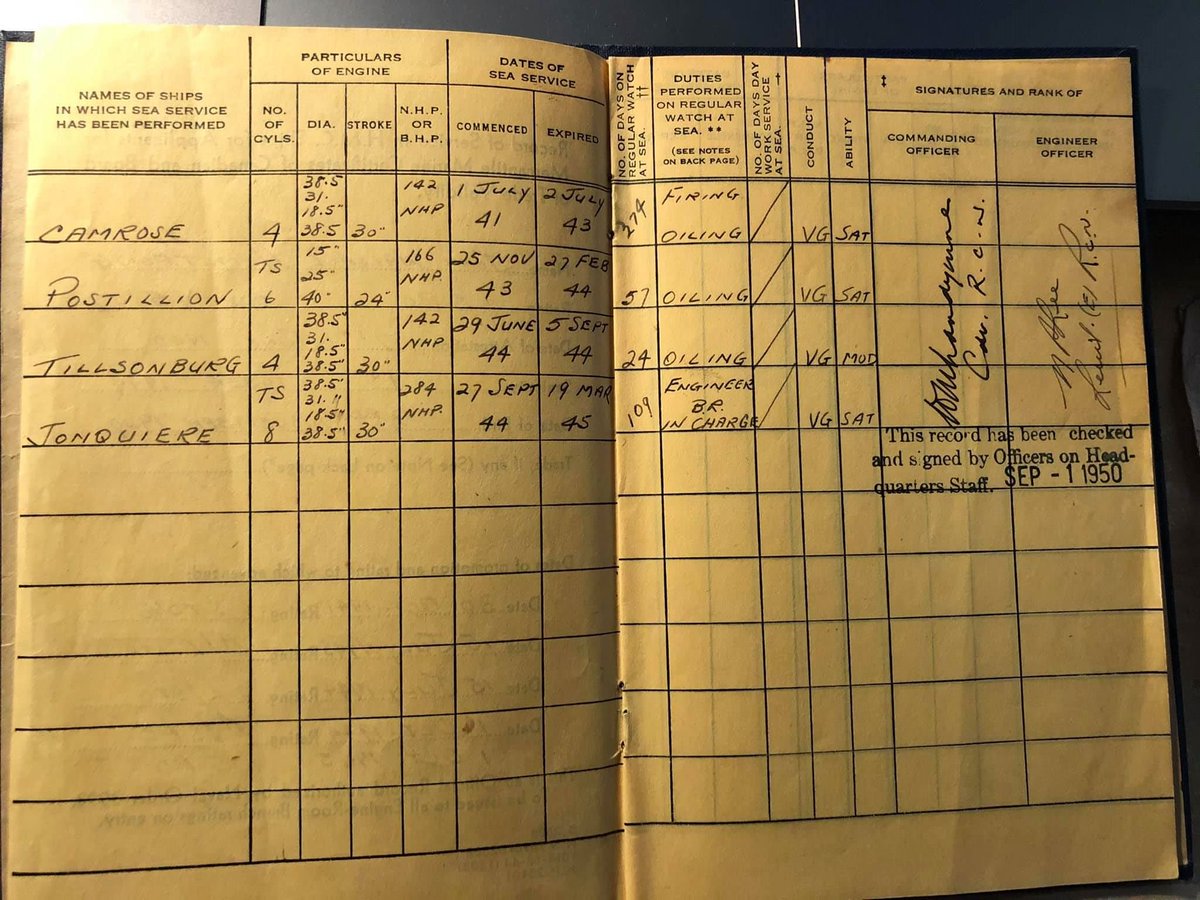 PARTICULARS
OF ENGINE
DATES OF
SEA SERVICE
NAMES OF SHIPS
IN WHICH SEA SERVICE
HAS BEEN PERFORMED
NO.
OF
CYLS.
DIA.
STROKE
N.H.P.
OR
B.H.P.
COMMENCED
EXPIRED
NO. OF DAYS ON
REGULAR WATCH
AT SEA. ††
DUTIES
PERFORMED
ON REGULAR
WATCH AT
SEA. **
(SEE NOTES
ON BACK PAGE)
NO. OF DAYS DAY
WORK SERVICE †
AT SEA.
CONDUCT
ABILITY
‡ SIGNATURES AND RANK OF
COMMANDING
OFFICER
ENGINEER
OFFICER
38.5 142 1 JULY 2 JULY FIRING
31.
18.5" NHP 41 43
CAMROSE 4 38.5 30" OILING VG SAT
TS 15" 166 25 NOV 27 FEB
25" NHP.
POSTILLION 6 40" 24" 43 44 57 OILING VG SAT
38.5" 142 29 JUNE 5 SEPT
31. NHP
18.5"
TILLSONBURG 4 38.5" 30" 44 44 24 OILING VG MOD
TS 38.5" 284 27 SEPT 19 MAR ENGINEER
31." NHP. 109 B.R.
18.5"
JONQUIERE 8 38.5" 30" 44 45 IN CHARGE VG SAT
R.C.N.
R.C.N.
This record has been checked
and signed by Officers on Head-
quarters Staff. SEP - 1 1950